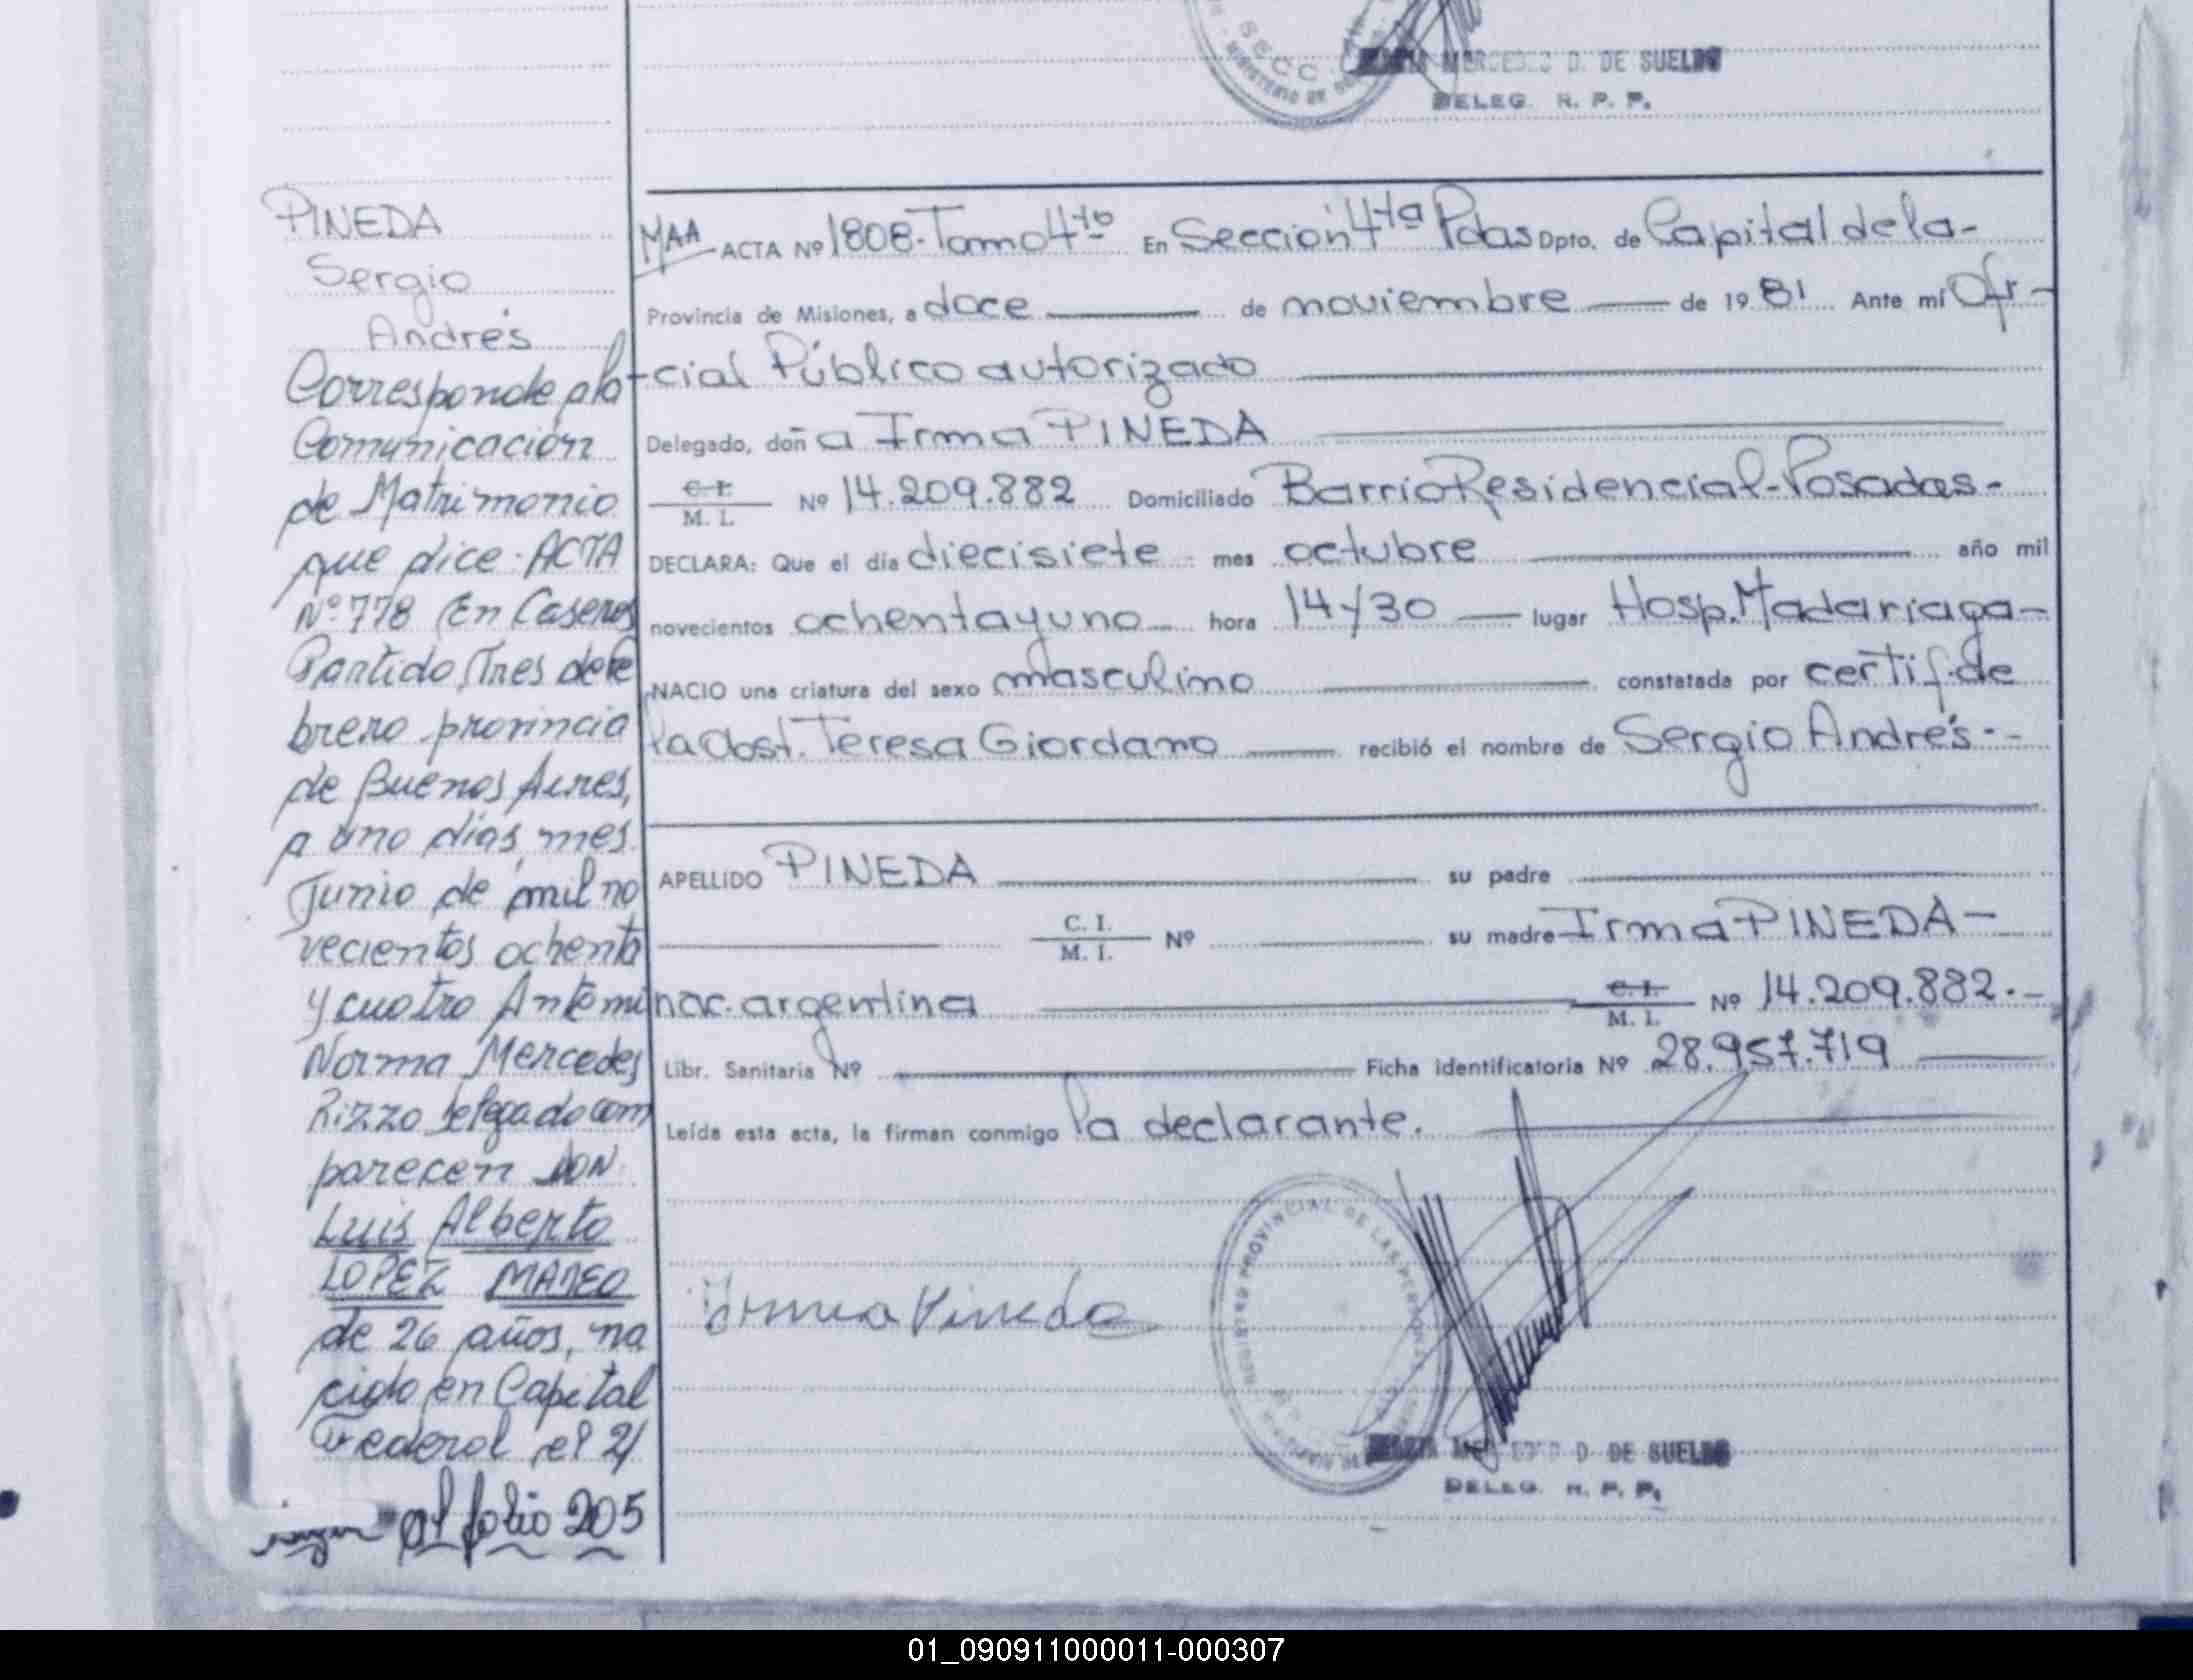 SECC
MINISTERIO DE
MERCEDES D. DE SUELDO
DELEG. R. P. P.
PINEDA
Sergio
Andrés
Corresponde a la
Comunicación
de Matrimonio
que dice. ACTA
Nº 778 En Caseros
Partido Tres de Fe
brero provincia
de Buenos Aires,
a uno días mes
Junio de mil no
vecientos ochenta
y cuatro Ante mi
Norma Mercedes
Rizzo Delegado com
parecen DON
Luis Alberto
LOPEZ MATEO
de 26 años, na
cido en Capital
Federal, el 21
al folio 205
MAA ACTA Nº 1808-Tomo 4to En Sección 4ta Pdas Dpto. de Capital de la-
Provincia de Misiones, a doce de noviembre de 1981 Ante mí Ofi-
cial Público autorizado
Delegado, doña Irma PINEDA
C. I.
M. I. Nº 14.209.882 Domiciliado Barrio Residencial-Posadas-
DECLARA: Que el día diecisiete mes octubre año mil
novecientos ochenta y uno hora 14/30 lugar Hosp. Madariaga-
NACIO una criatura del sexo masculino constatada por certif. de
la Obst. Teresa Giordano recibió el nombre de Sergio Andrés.-
APELLIDO PINEDA su padre
C. I.
M. I. Nº su madre Irma PINEDA-
nac. argentina C. I.
M. I. Nº 14.209.882.-
Libr. Sanitaria Nº Ficha identificatoria Nº 28.957.719
Leída esta acta, la firman conmigo la declarante.
Irma Pineda
REGISTRO PROVINCIAL DE LAS PERSONAS
D. DE SUELDO
DELEG. R. P. P.
01_090911000011-000307